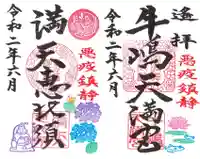 遙拝
牛嶋天満宮
悪疫鎮静
令和二年六月
満天恵比須
悪疫鎮静
令和二年六月